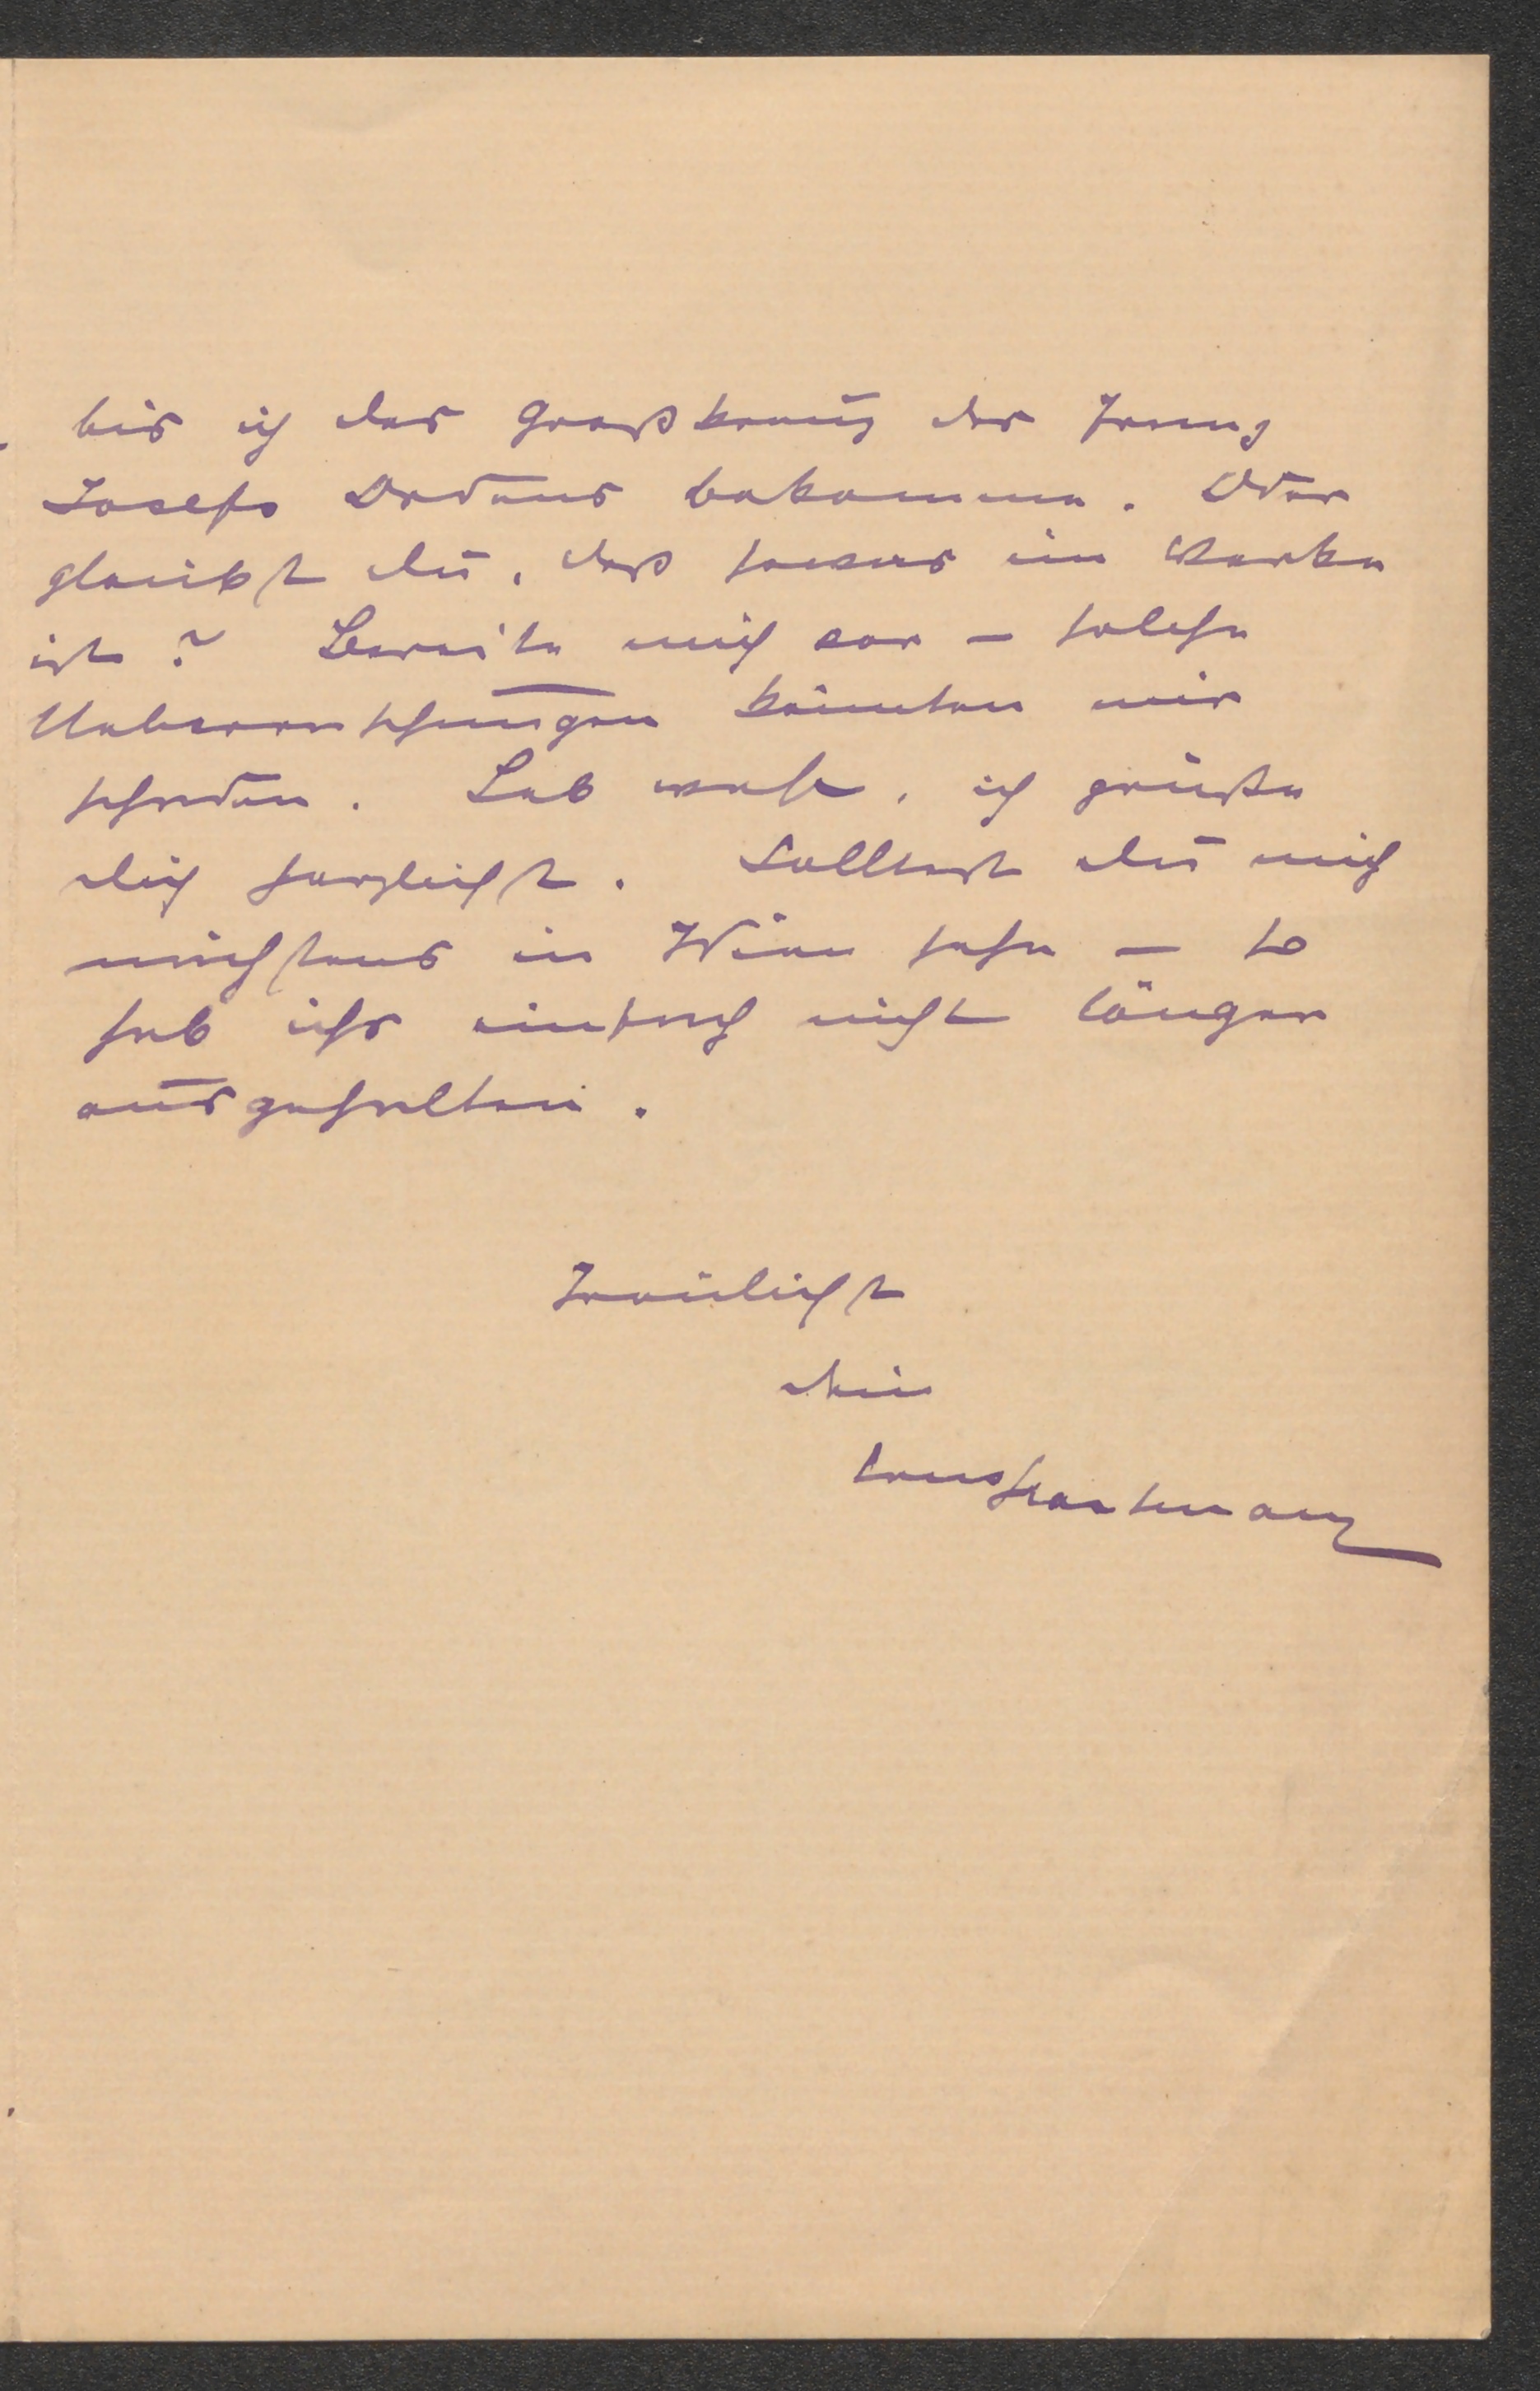 bis ich das Großkreuz des Franz
Josefs Ordens bekomme. Oder
glaubst du, daß sowas im Werke
ist? Bereite mich vor – solche
Ueberraschungen könnten mir
schaden. Leb wohl, ich grüße
dich herzlichst. Solltest du mich
nächstens in Wien sehn – so
hab ichs einfach nicht länger
ausgehalten.
Treulichst
dein
Ernst Hartmann